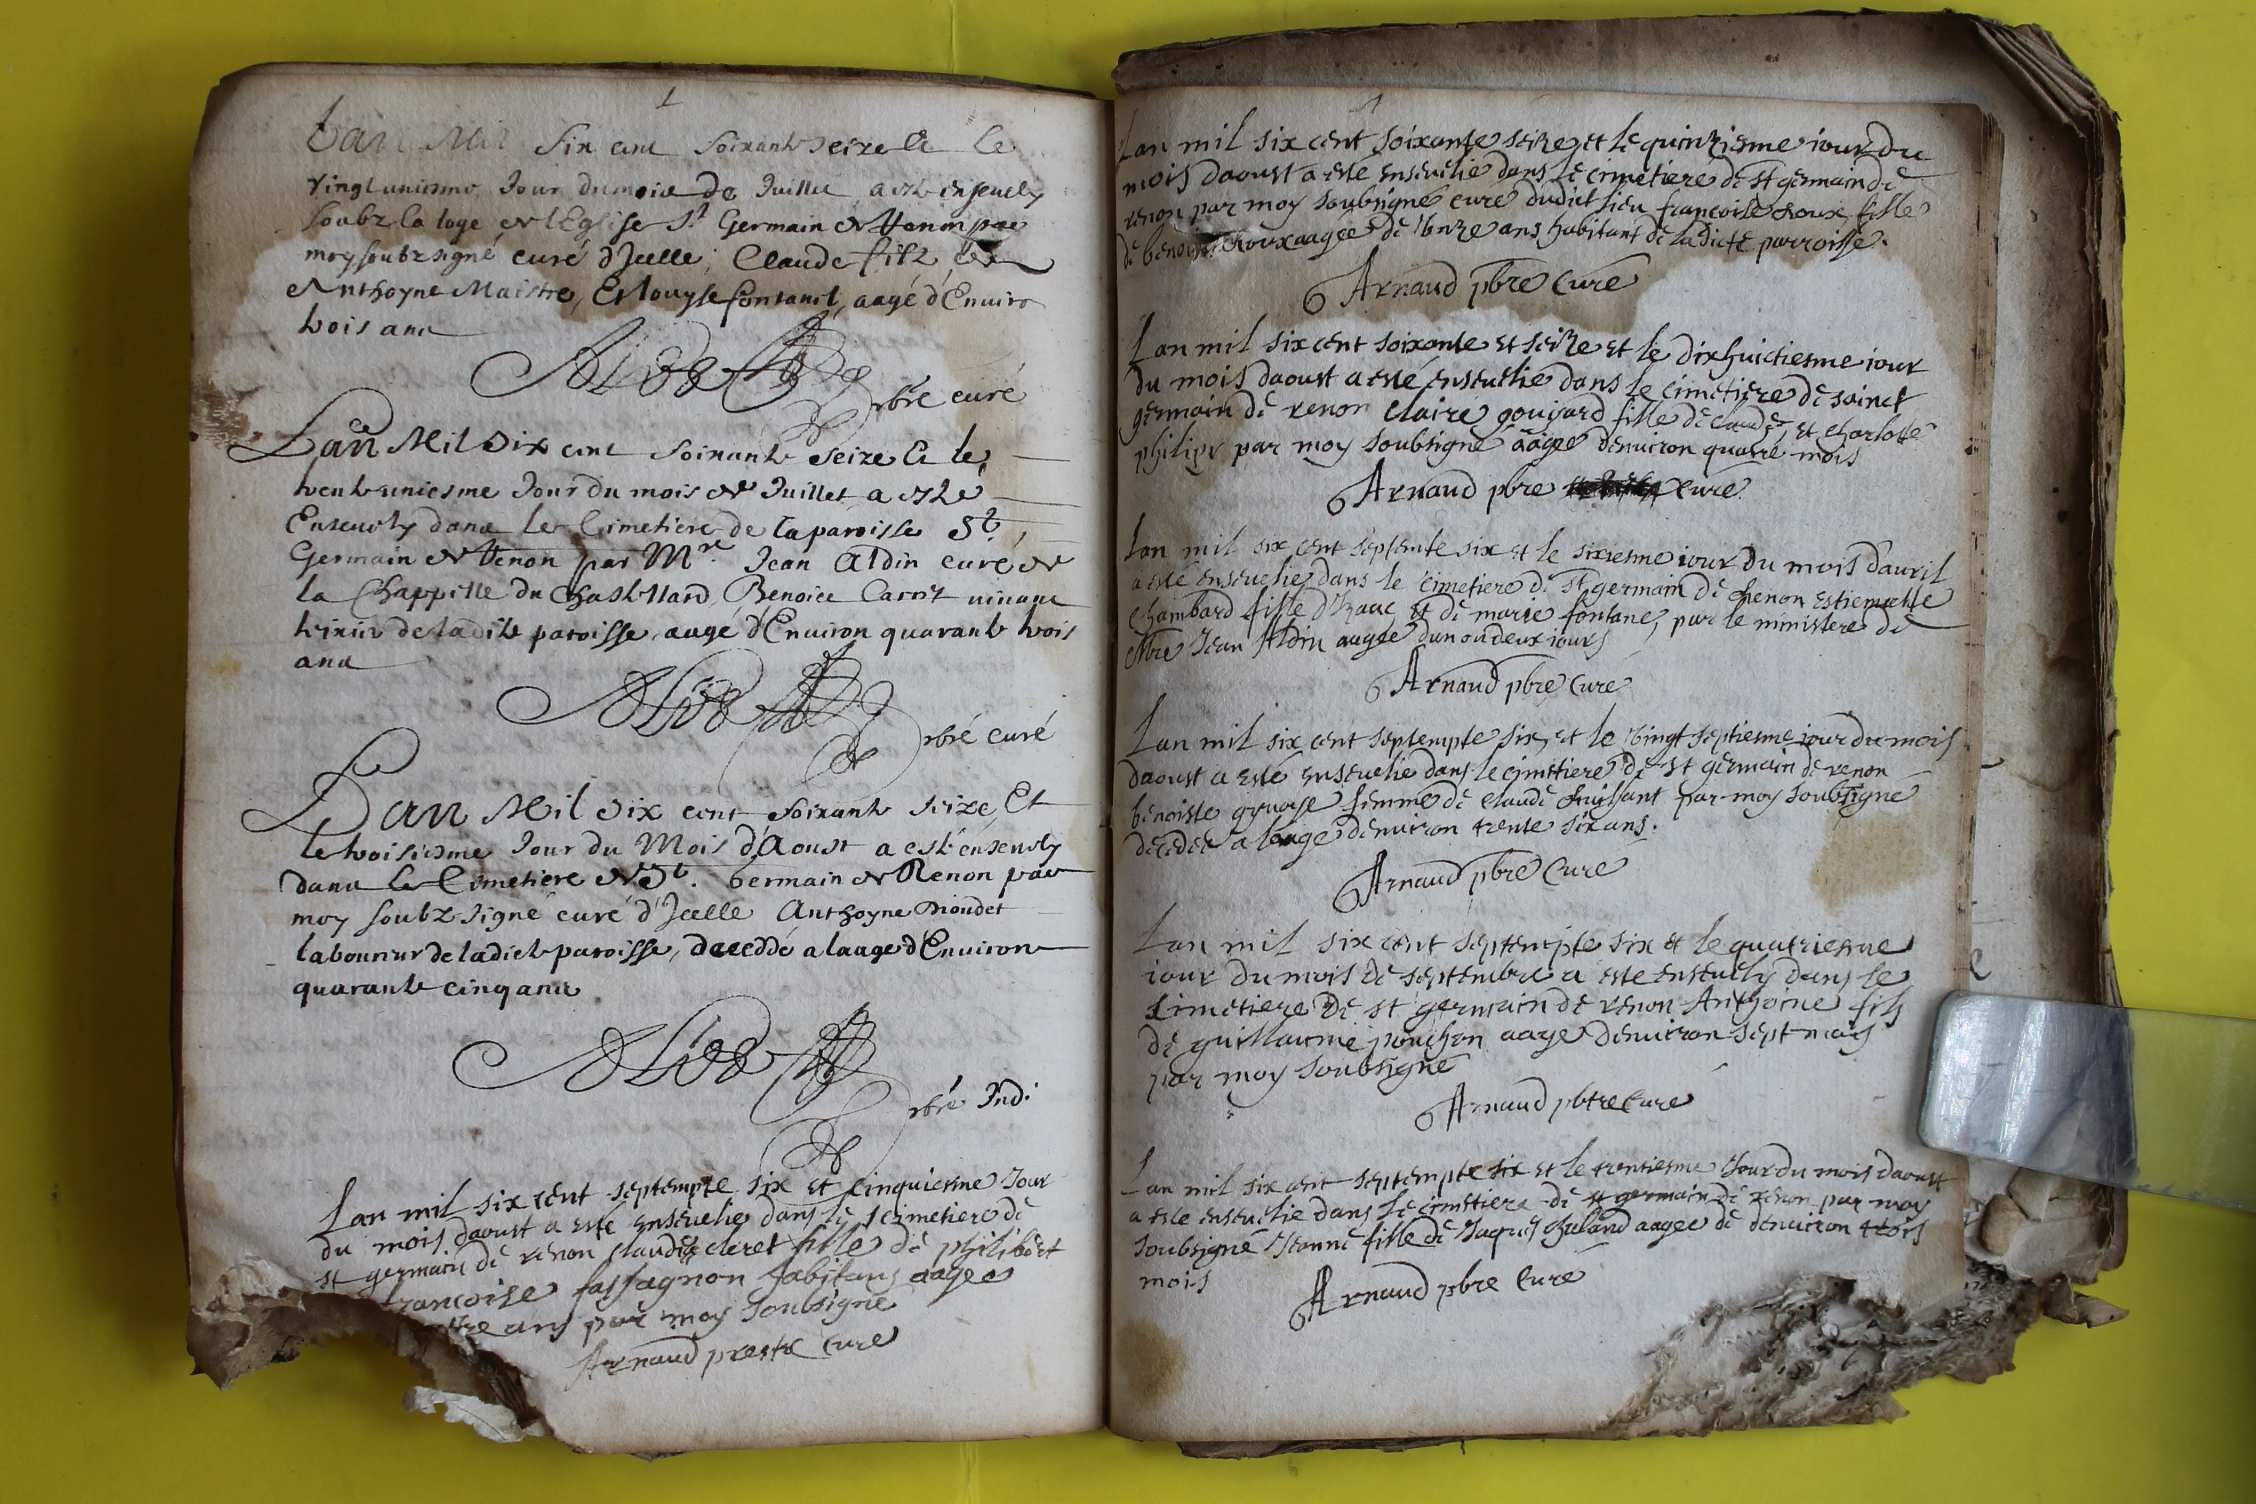 Lan Mil Six cent soixante seize et le
vingt uniesme Jour du mois de Juillet a esté ensevely
soubz la loge de l'Eglise St Germain de Renon par
moy soubz signé curé d'Jcelle, Claude filz de
Anthoyne Maistre, Et Louyse fontanel, aagé d'Enviro
trois ans
pbré curé
Lan Mil Six cent soixante seize Et le
trente uniesme Jour du mois de Juillet a esté
Ensevely dans le Cimetiere de la paroisse St
Germain de Renon par Mre Jean Aldin curé de
la Chappelle du Chastellard, Benoict Carrel vivant
de ladite paroisse, aagé d'Environ quarante trois
ans
pbré curé
Lan Mil Six cent soixante seize, Et
le troisiesme Jour du Mois d'Aoust a esté ensevely
dans le Cimetiere de St. Germain de Renon par
moy soubz signé curé d'Jcelle Anthoyne
laboureur de ladicte paroisse, decedé a laage d'Environ
quarante cinq ans
pbré Ind.
Lan mil six cent septempte six et cinquiesme Jour
du mois daoust a esté ensevelie dans le cimetiere de
st germain de renon claudie cleret fille de philibert
francoise fassagnon habitans aagee
ans par moy soubsigné
Arnaud prestre cure
Lan mil six cent soixante seize et le quinziesme iour du
mois daoust a esté ensevelie dans le cimetiere de st germain de
renon par moy soubsigné curé dudict lieu francoise roux fille
de benoist roux aagée de unze ans habitant de ladicte parroisse.
Arnaud pbre Curé
Lan mil six cent soixante et seize et le dixhuictiesme iour
du mois daoust a esté ensevelie dans le cimetiere de sainct
germain de renon claire goujard fille de claude, et charlotte
philipe par moy soubsigné aagée denviron quatre mois
Arnaud pbre curé
Lan mil six cent septente six et le sixiesme iour du mois davril
a esté ensevelie dans le cimetiere de st germain de Renon estiennette
chambard fille d'Izaac et de marie fontane, par le ministere de
Mre Jean Aldin aagée dun ou deux iours
Arnaud pbre Curé
Lan mil six cent septempte six, et le vingt septiesme iour du mois
daoust a esté ensevelie dans le cimetiere de st germain de renon
benoiste femme de claude par moy soubsigné
decedee a laage denviron trente six ans.
Arnaud pbre Curé
Lan mil six cent septempte six et le quatriesme
iour du mois de septembre a esté ensevely dans le
cimetiere de st germain de renon Anthoine fils
de guillaume ponchon aagé denviron sept mois
par moy soubsigné
Arnaud pbtre Curé
Lan mil six cent septempte six et le trentiesme iour du mois daoust
a esté ensevelie dans le cimetiere de st germain de renon par moy
soubsigné Jeanne fille de Jaques aagee de denviron trois
mois
Arnaud pbre Curé